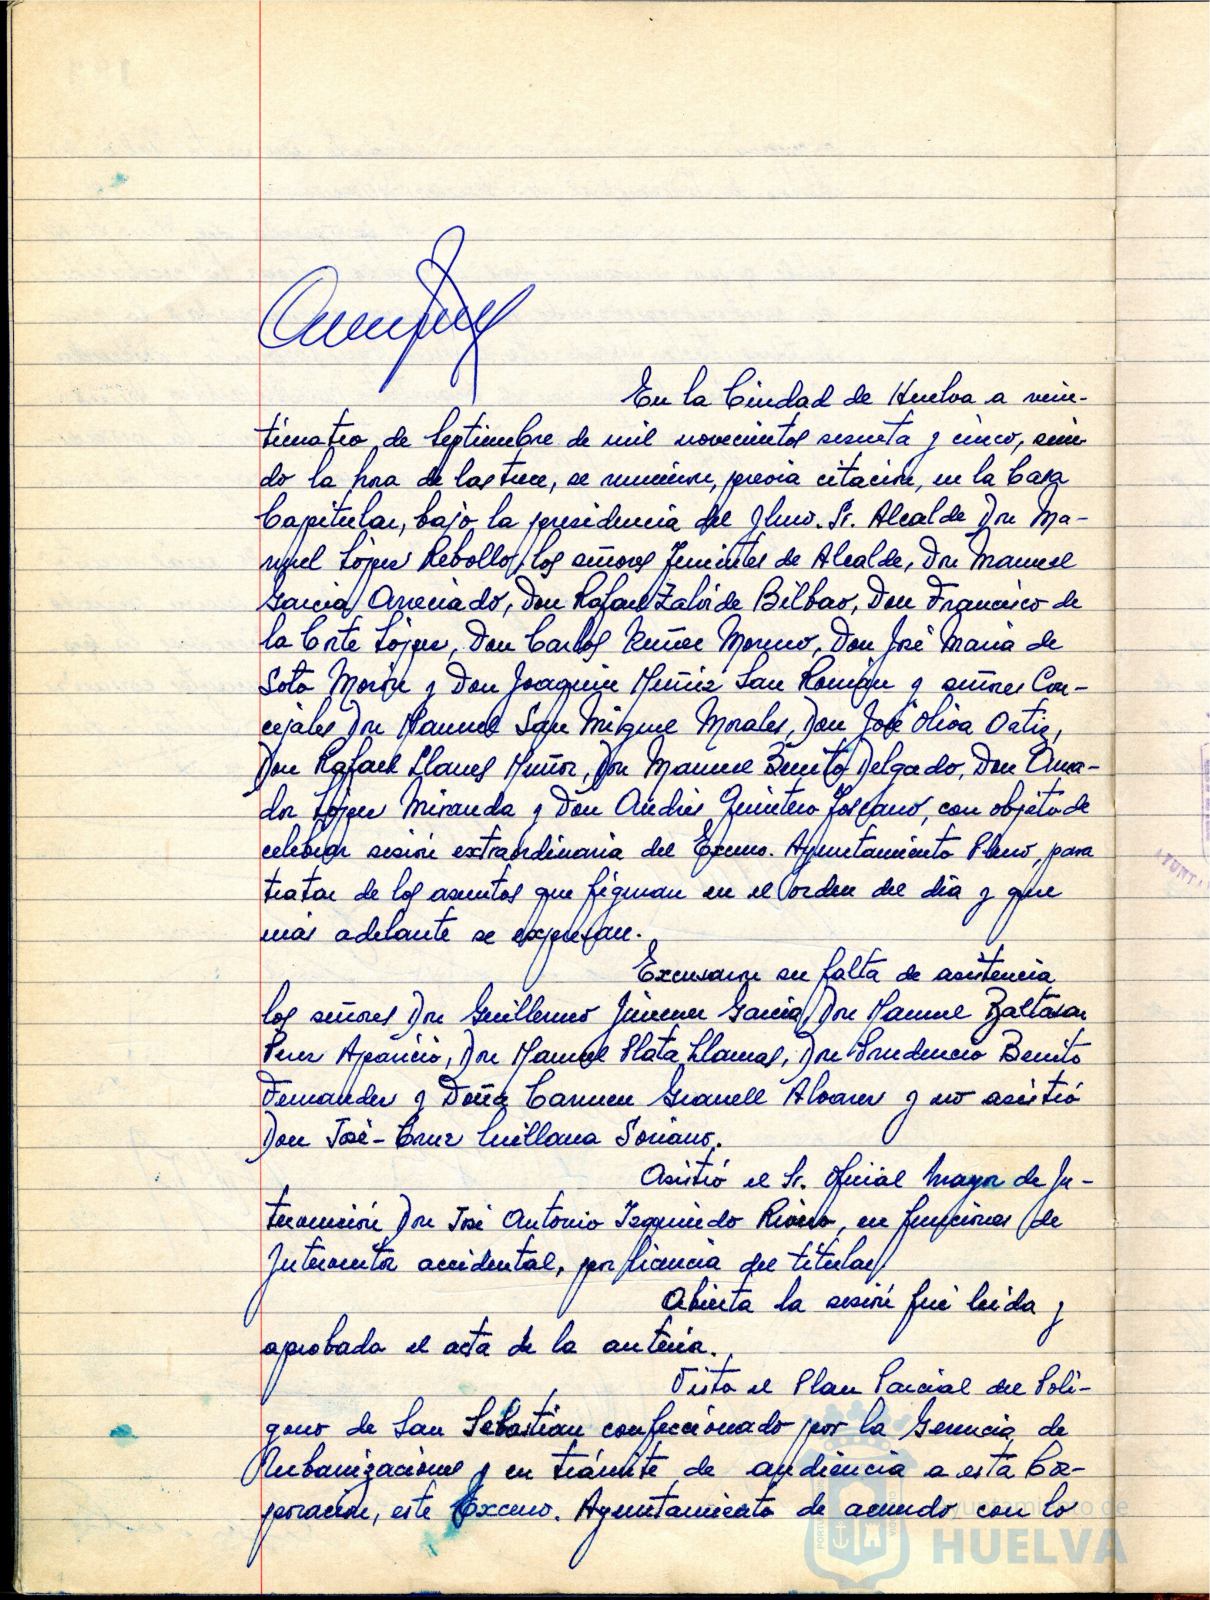 En la Ciudad de Huelva a vein-
ticuatro de Septiembre de mil novecientos sesenta y cinco, sien-
do la hora de las trece, se reunieron, previa citación, en la Casa
Capitular, bajo la presidencia del Ilmo. Sr. Alcalde Don Ma-
nuel López Rebollo, los señores Tenientes de Alcalde, Don Manuel
García Arreciado, Don Rafael Zalvide Bilbao, Don Francisco de
la Corte López, Don Carlos Núñez Moreno, Don José María de
Soto Morón y Don Joaquín Muñiz San Román y señores Con-
cejales Don Manuel San Miguel Morales, Don José Oliva Ortiz,
Don Rafael Llanes Muñoz, Don Manuel Benito Delgado, Don Ama-
dor López Miranda y Don Andrés Quintero Toscano, con objeto de
celebrar sesión extraordinaria del Excmo. Ayuntamiento Pleno, para
tratar de los asuntos que figuran en el orden del día y que
más adelante se expresan.
Excusaron su falta de asistencia
los señores Don Guillermo Jimenez García, Don Manuel Baltasar
Perez Aparicio, Don Manuel Plata Llamas, Don Prudencio Benito
Fernandez y Doña Carmen Granell Alvarez y no asistió
Don José-Cruz Orillana Soriano.
Asistió el Sr. Oficial Mayor de In-
tervención Don José Antonio Izquierdo, en funciones de
Interventor accidental, por licencia del titular.
Abierta la sesión fué leida y
aprobada el acta de la anterior.
Visto el Plan Parcial del Polí-
gono de San Sebastian confeccionado por la Gerencia de
Urbanizaciones y en trámite de audiencia a esta Cor-
poración, este Excmo. Ayuntamiento de acuerdo con lo
Ayuntamiento de
HUELVA